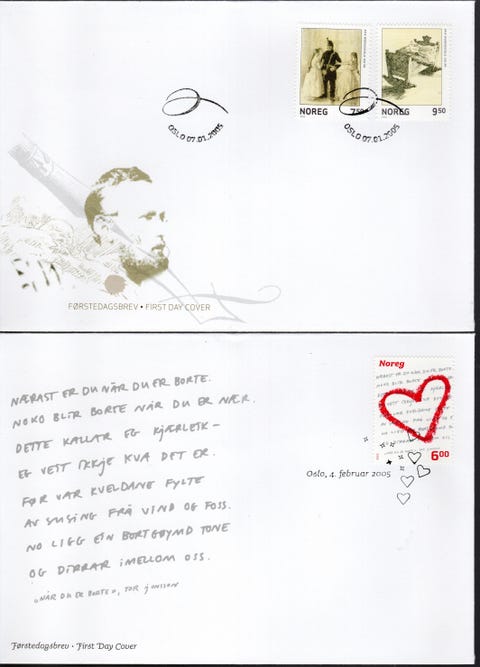 NOREG 7,50
NOREG 9,50
OSLO 07.01.2005
OSLO 07.01.2005
FØRSTEDAGSBREV • FIRST DAY COVER
NÆRAST ER DU NÅR DU ER BORTE.
NOKO BLIR BORTE NÅR DU ER NÆR.
DETTE KALLAR EG KJÆRLEIK –
EG VEIT IKKJE KVA DET ER.
FØR VAR KVELDANE FYLTE
AV SUSING FRÅ VIND OG FOSS.
NO LIGG EIN BORTGØYMD TONE
OG DIRRAR IMELLOM OSS.
"NÅR DU ER BORTE", TOR JONSSON
Noreg
6,00
Oslo, 4. februar 2005
Førstedagsbrev · First Day Cover